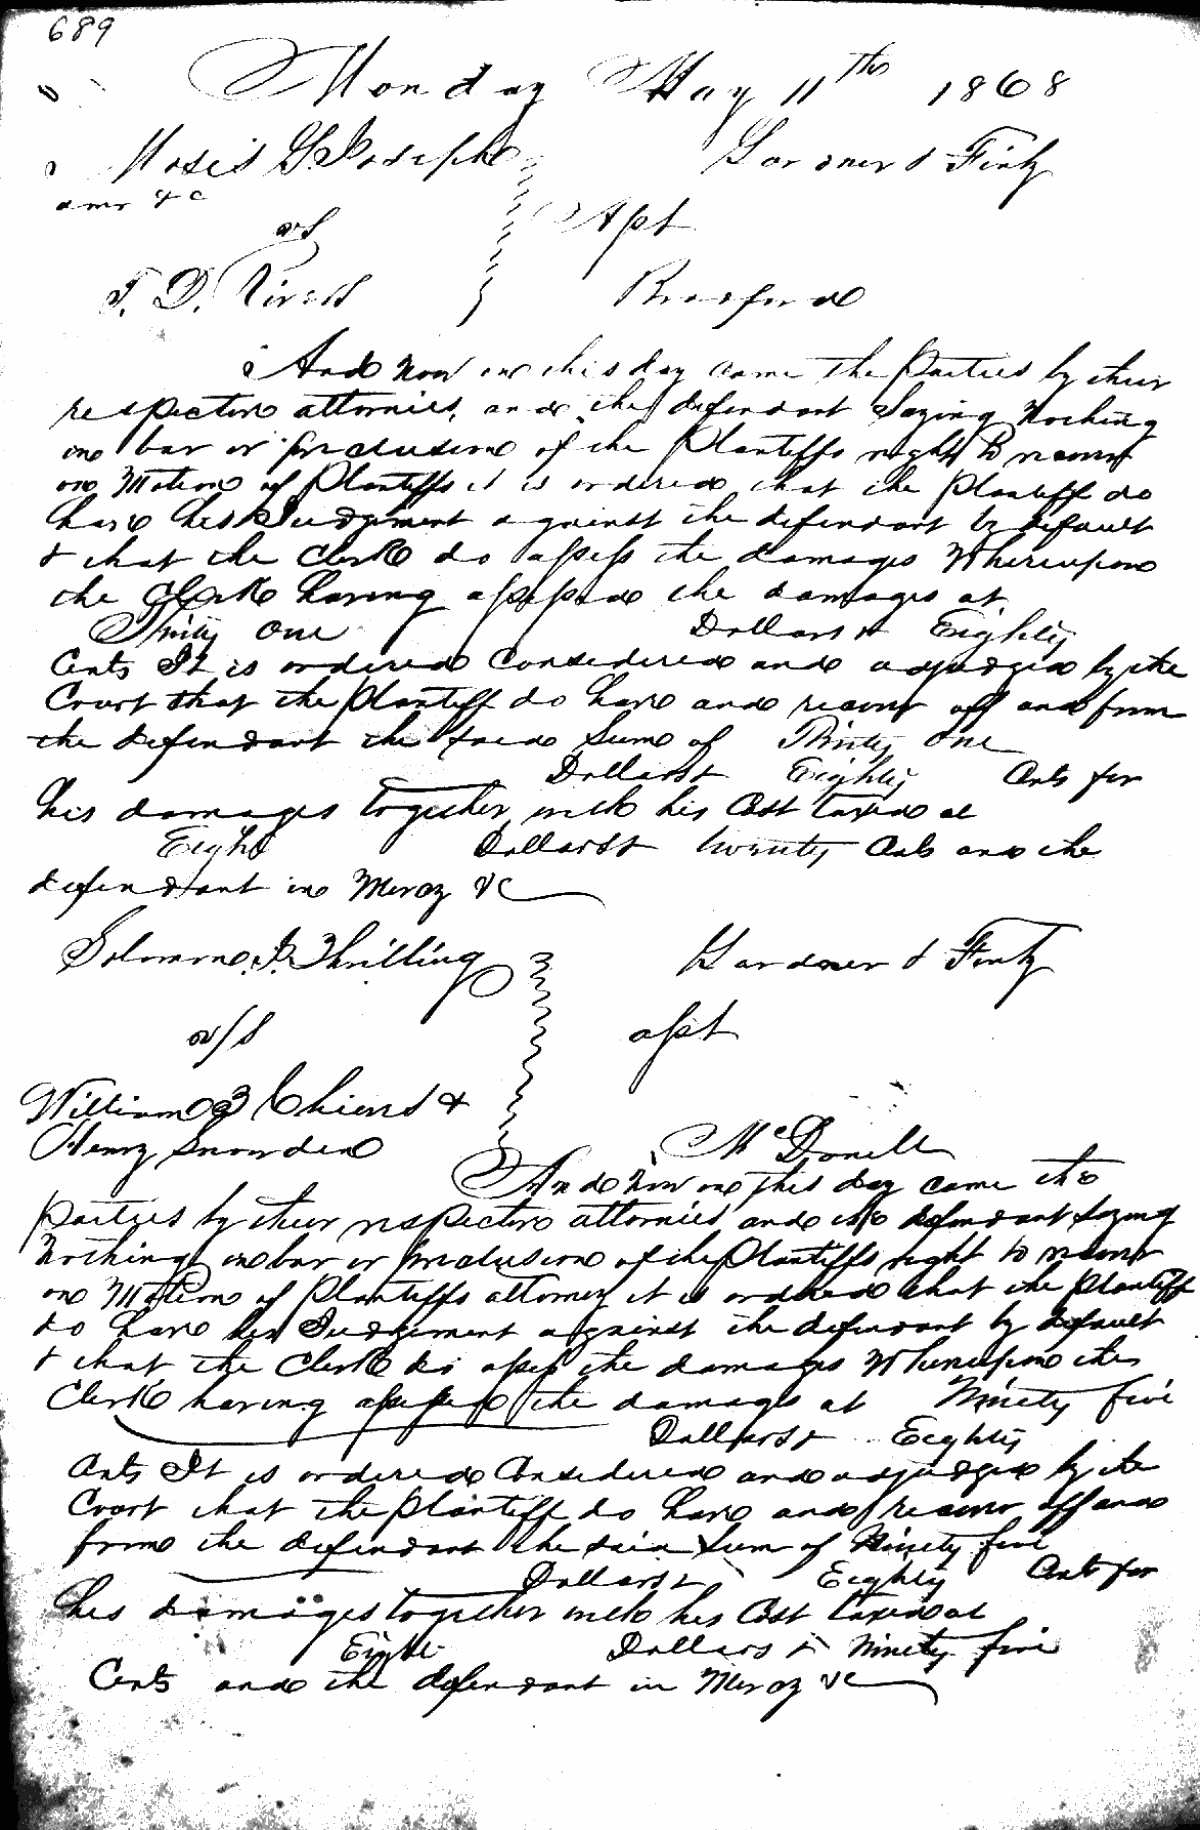 689
Monday May 11th 1868
Moses G. Joseph Gardner & Fintz
amr &c
vs Apt
T. D. Bradford
And now on this day came the Parties by their
respective attornies, and the defendant Saying Nothing
in bar or preclusion of the Plantiffs right to recover
on Motion of Plantiffs it is ordered that the Plantiff do
have his Judgement against the defendant by default
& that the Clerk do assess the damages Whereupon
the Clerk having assessed the damages at
Thirty One Dollars & Eighty
Cents It is ordered Considered and adjudged by the
Court that the Plantiff do have and recover off and from
the defendant the said Sum of Thirty One
Dollars & Eighty Cents for
his damages together with his Cost taxed at
Eight Dollars & twenty Cents and the
defendant in Mercy &c
Solomon J. Thrilling Gardner & Fintz
v/s apt
William &
Henry Snowden McDonell
And Now on this day came the
Parties by their respective attornies and the defendant Saying
Nothing in bar or preclusion of the Plantiffs right to recover
on Motion of Plantiffs attorney it is ordered that the Plantiff
do have his Judgement against the defendant by default
& that the Clerk do assess the damages Whereupon the
Clerk having assessed the damages at Ninety five
Dollars & Eighty
Cents It is ordered Considered and adjudged by the
Court that the Plantiff do have and recover off and
from the defendant the said Sum of Ninety five
Dollars & Eighty Cents for
his damages together with his Cost taxed at
Eight Dollars & Ninety five
Cents and the defendant in Mercy &c